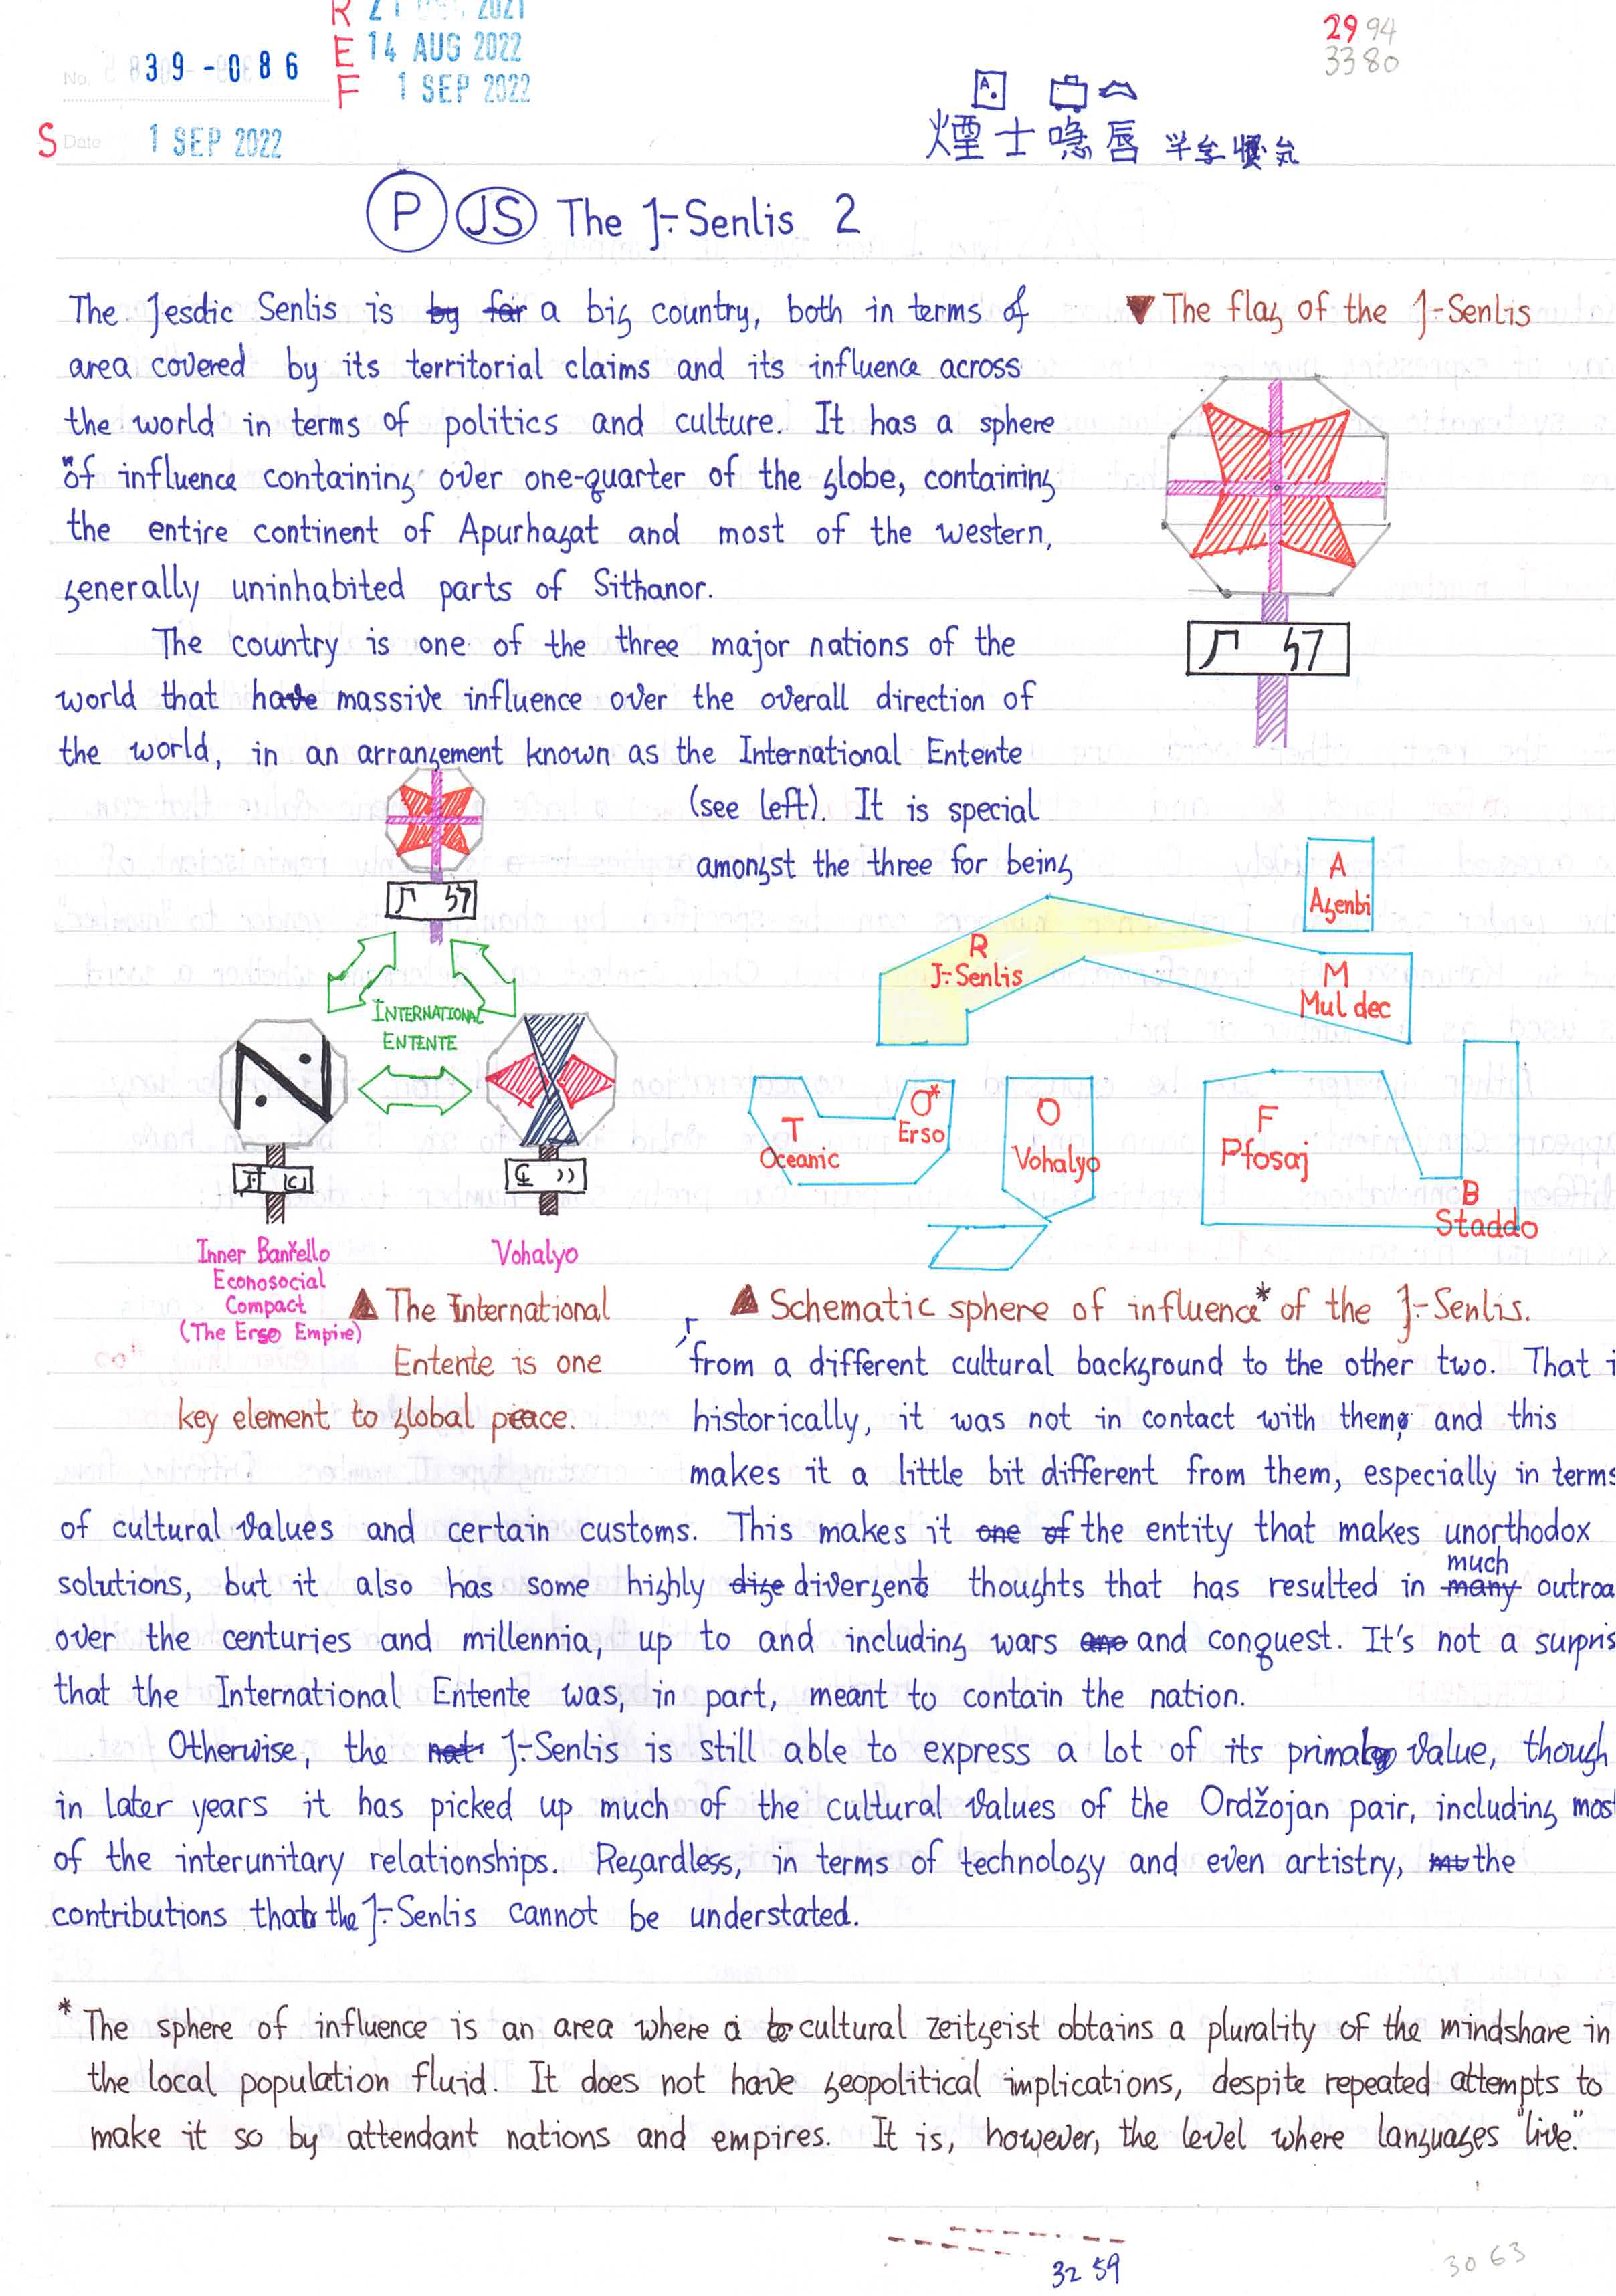 R
E
F
21 2021
14 AUG 2022
1 SEP 2022
29 94
33 80
No. 839-086
S Date 1 SEP 2022
A.
煙士喼唇
P JS The J-Senlis 2
The Jesdic Senlis is by far a big country, both in terms of
area covered by its territorial claims and its influence across
the world in terms of politics and culture. It has a sphere
of influence containing over one-quarter of the globe, containing
the entire continent of Apurhagat and most of the western,
generally uninhabited parts of Sithanor.
▼ The flag of the J-Senlis
The country is one of the three major nations of the
world that have massive influence over the overall direction of
the world, in an arrangement known as the International Entente
(see left). It is special
amongst the three for being
INTERNATIONAL
ENTENTE
Inner Banřello
Econosocial
Compact
(The Erso Empire)
Vohalyo
▲ The International
Entente is one
key element to global peace.
A
Agenbi
R
J-Senlis
M
Mul dec
T
Oceanic
O*
Erso
O
Vohalyo
F
Pfosaj
B
Staddo
▲ Schematic sphere of influence* of the J-Senlis.
from a different cultural background to the other two. That i
historically, it was not in contact with them, and this
makes it a little bit different from them, especially in terms
of cultural values and certain customs. This makes it one of the entity that makes unorthodox
solutions, but it also has some highly dige divergent thoughts that has resulted in many much outroa
over the centuries and millennia, up to and including wars ano and conquest. It's not a surpris
that the International Entente was, in part, meant to contain the nation.
Otherwise, the nat J-Senlis is still able to express a lot of its primal value, though
in later years it has picked up much of the cultural values of the Ordžojan pair, including most
of the interunitary relationships. Regardless, in terms of technology and even artistry, the
contributions that the J-Senlis cannot be understated.
* The sphere of influence is an area where a cultural zeitgeist obtains a plurality of the mindshare in
the local population fluid. It does not have geopolitical implications, despite repeated attempts to
make it so by attendant nations and empires. It is, however, the level where languages "live."
32 59
30 63